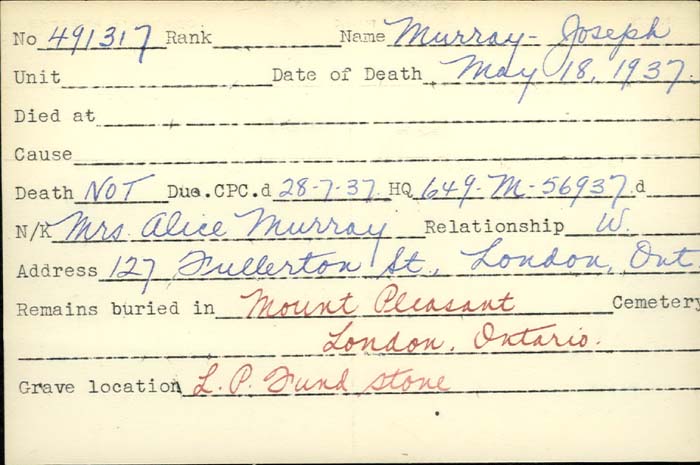 No 491317 Rank Name Murray - Joseph
Unit Date of Death May 18, 1937.
Died at
Cause
Death NOT Due.CPC.d 28-7-37 HQ 649-M-56937.d
N/K Mrs. Alice Murray Relationship W.
Address 127 Fullerton St., London, Ont.
Remains buried in Mount Pleasant Cemetery
London, Ontario.
Grave location L. P. Fund stone